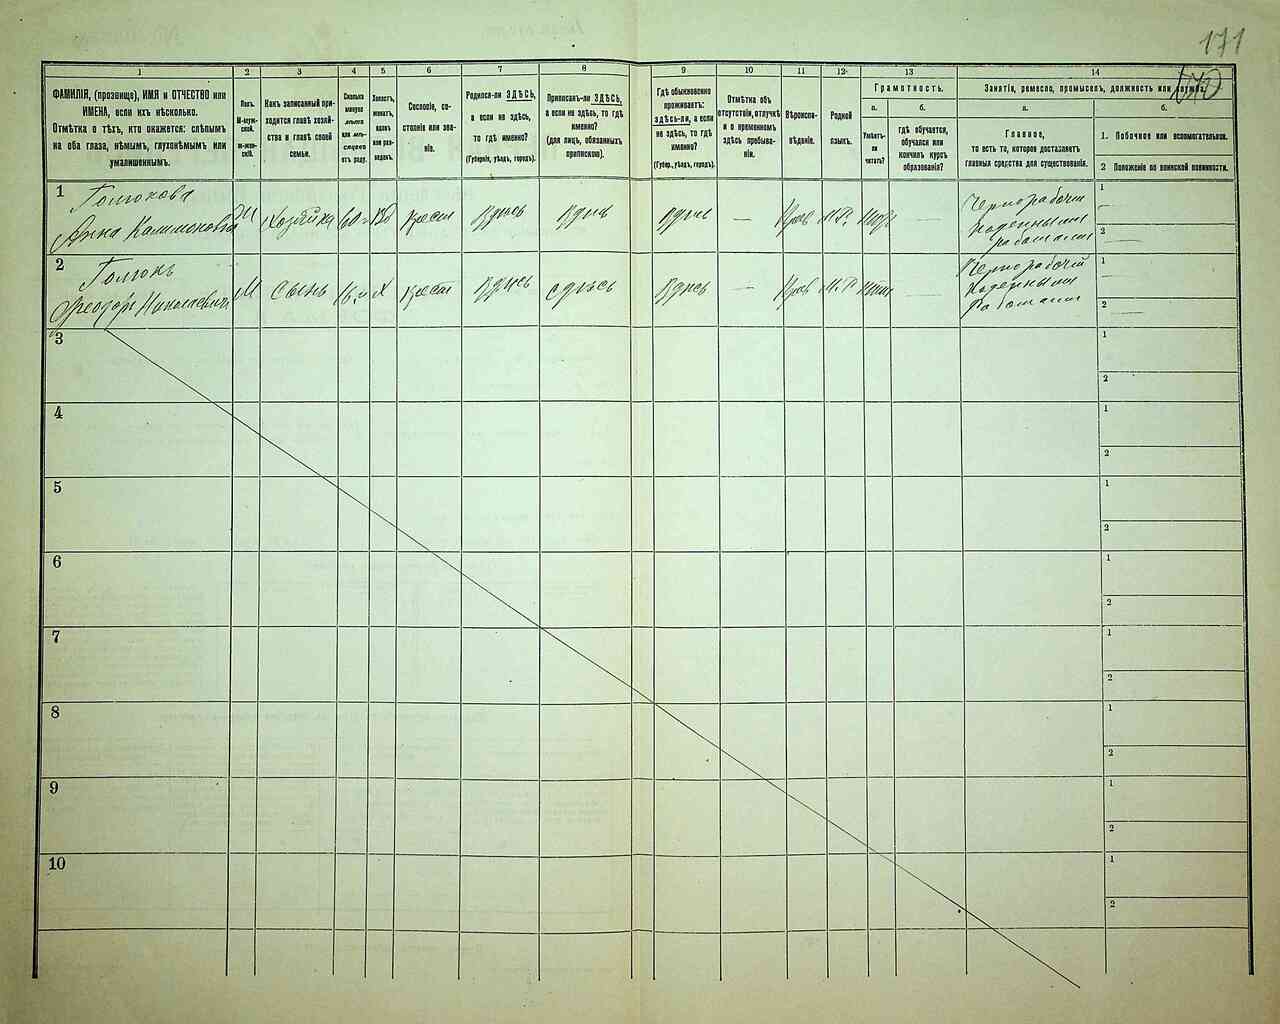 171
1
2
3
4
5
6
7
8
9
10
11
12
13
14
ФАМИЛІЯ, (прозвище), ИМЯ и ОТЧЕСТВО или
ИМЕНА, если ихъ нѣсколько.
Отмѣтка о тѣхъ, кто окажется: слѣпымъ
на оба глаза, нѣмымъ, глухонѣмымъ или
умалишеннымъ.
Полъ.
М-муж-
ской.
Ж-жен-
скій.
Какъ записанный при-
ходится главѣ хозяй-
ства и главѣ своей
семьи.
Сколько
минуло
лѣтъ
или мѣ-
сяцевъ
отъ роду.
Холостъ,
женатъ,
вдовъ
или раз-
веденъ.
Сословіе, со-
стояніе или зва-
ніе.
Родился-ли ЗДѢСЬ,
а если не здѣсь,
то гдѣ именно?
(Губернія, уѣздъ, городъ).
Приписанъ-ли ЗДѢСЬ,
а если не здѣсь, то гдѣ
именно?
(для лицъ, обязанныхъ
припискою).
Гдѣ обыкновенно
проживаетъ:
здѣсь-ли, а если
не здѣсь, то гдѣ
именно?
(Губер., уѣздъ, городъ).
Отмѣтка объ
отсутствіи, отлучкѣ
и о временномъ
здѣсь пребыва-
ніи.
Вѣроиспо-
вѣданіе.
Родной
языкъ.
Грамотность.
а.
Умѣетъ-
ли
читать?
б.
гдѣ обучается,
обучался или
кончилъ курсъ
образованія?
Занятіе, ремесло, промыселъ, должность или служба.
а.
Главное,
то есть то, которое доставляетъ
главныя средства для существованія.
б.
1. Побочное или вспомогательное.
2 Положеніе по воинской повинности.
1
Анна
Хозяйка
60
крест
Здѣсь
Здѣсь
Здѣсь
—
Прав
М.Р.
—
Чернорабочій
поденными
работами
1
2
2
Голюкъ
Феодоръ Николаевичъ
М
Сынъ
Х
крест
Здѣсь
здѣсь
Здѣсь
—
Прав
М.Р.
—
Чернорабочій
Поденными
Работами
1
2
3
1
2
4
1
2
5
1
2
6
1
2
7
1
2
8
1
2
9
1
2
10
1
2